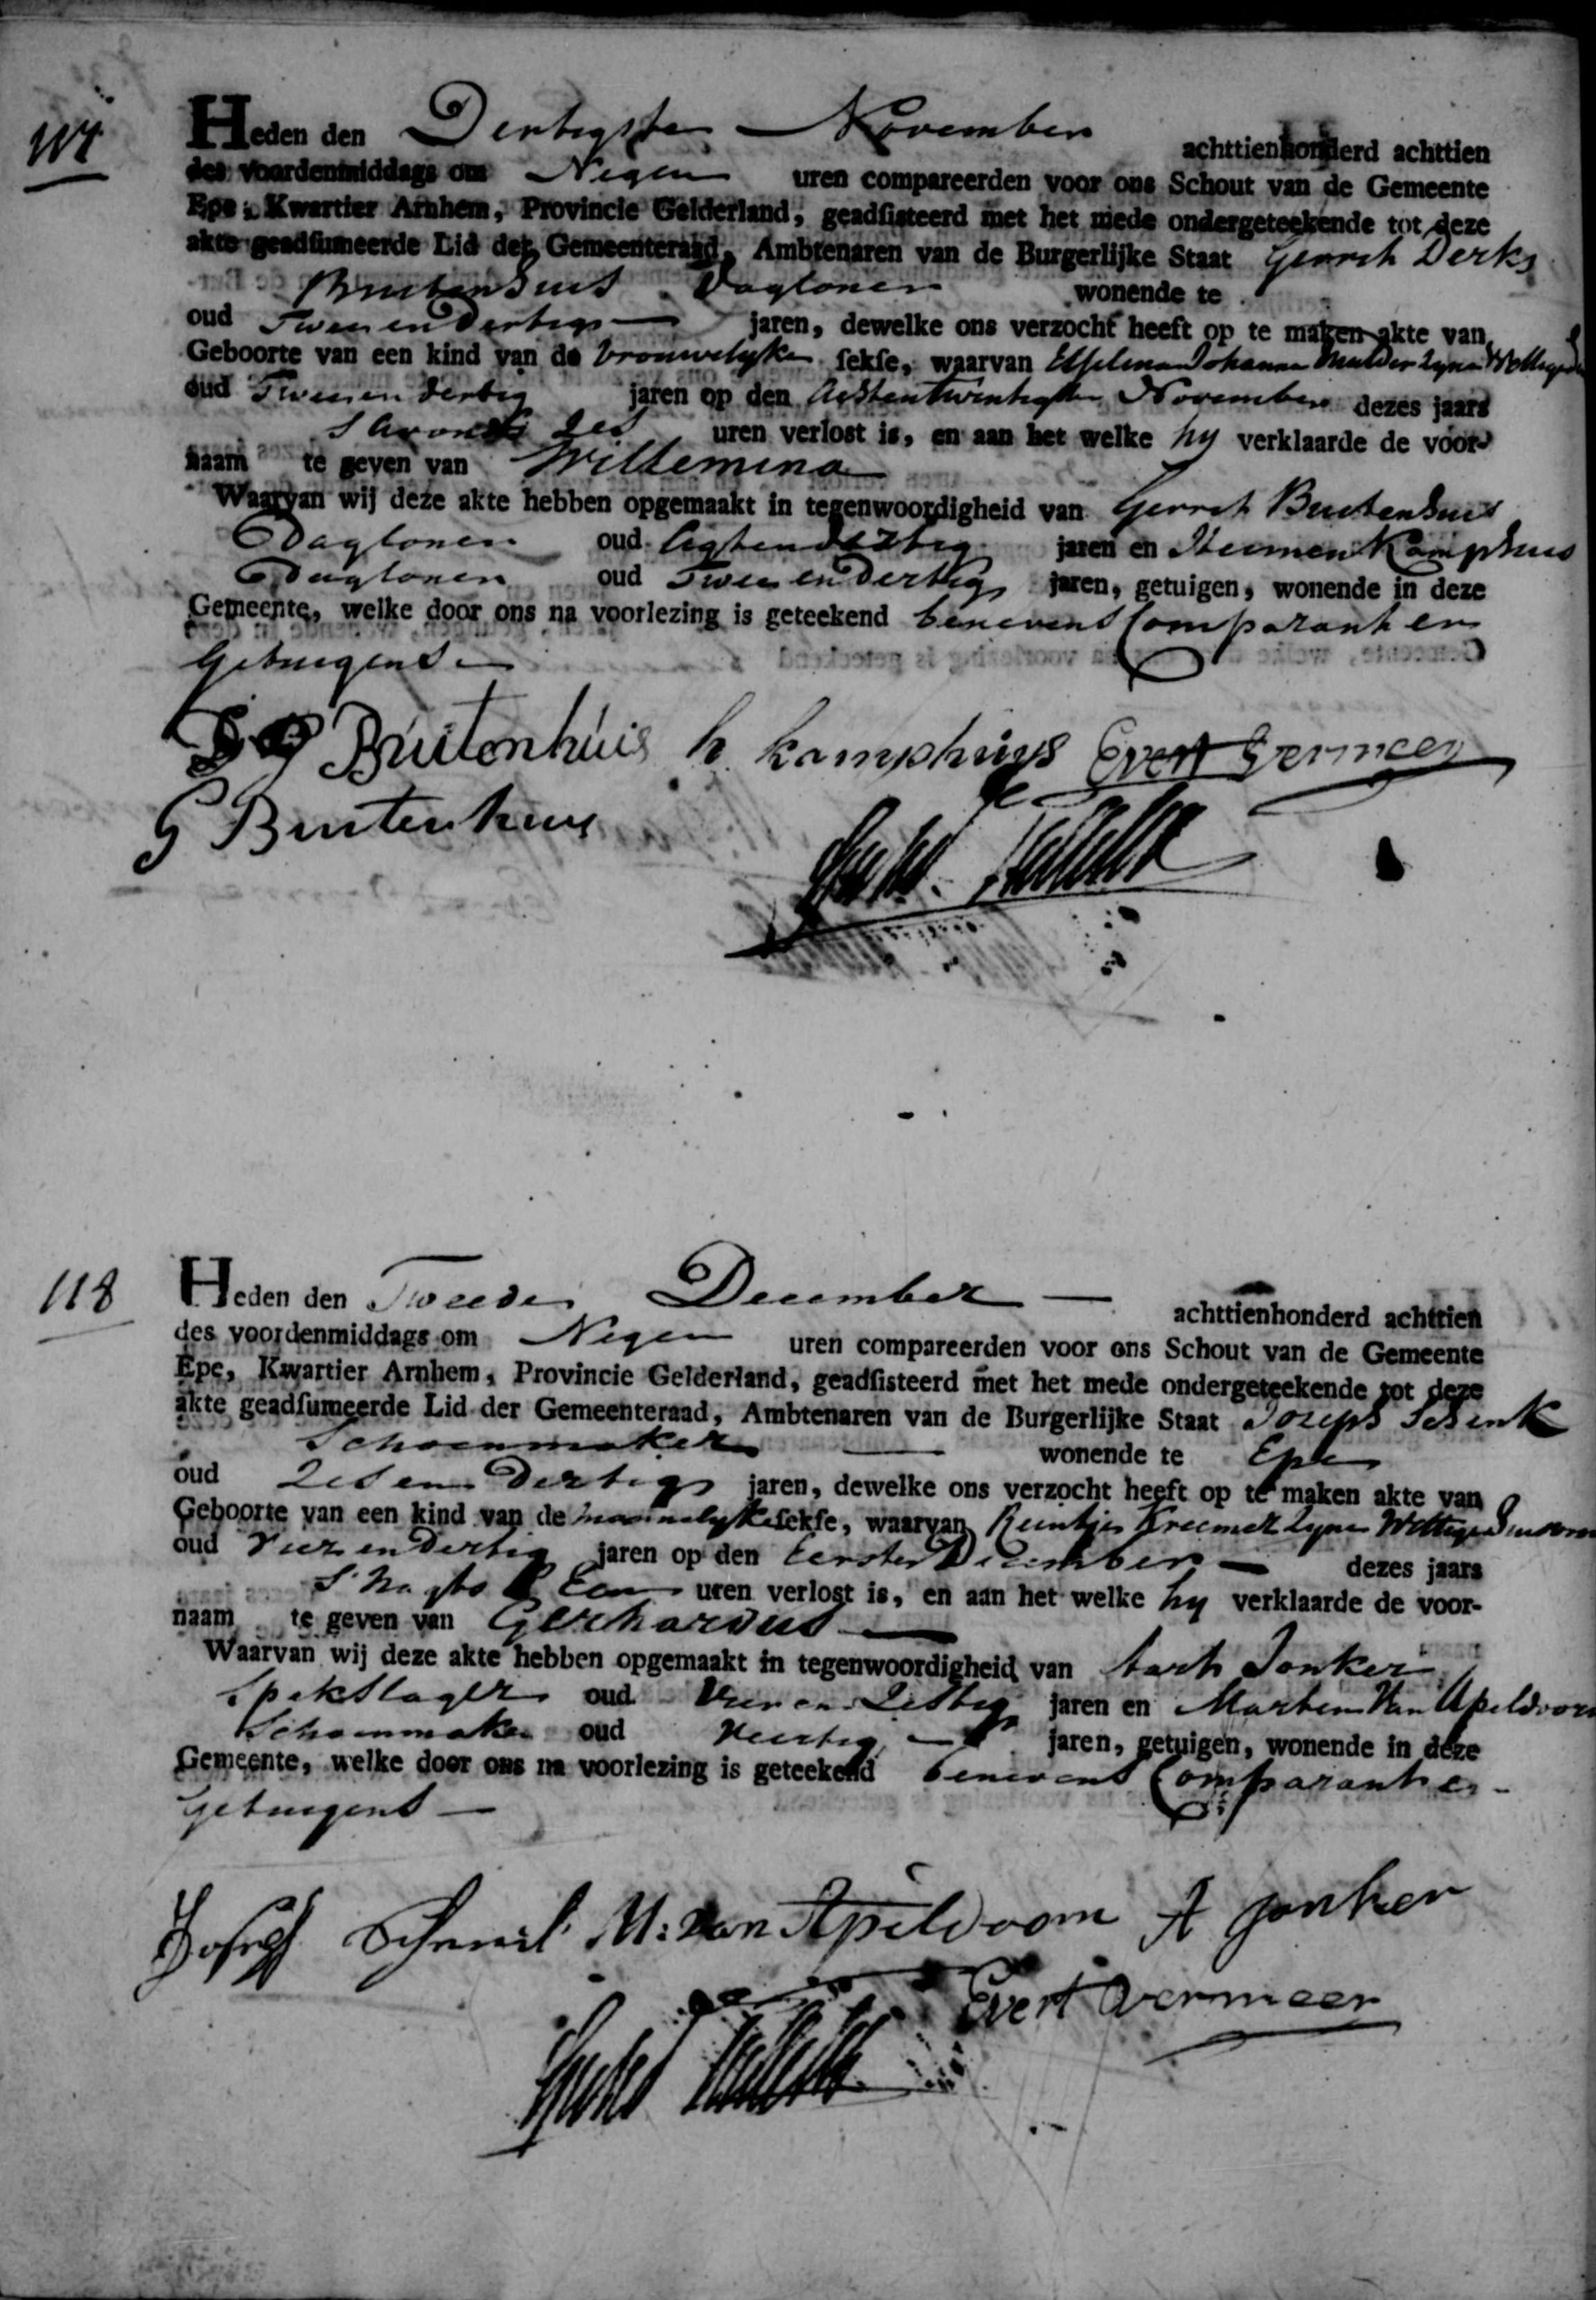 117
Heden den Dertigsten November achttienhonderd achttien
des voordenmiddags om Negen uren compareerden voor ons Schout van de Gemeente
Epe, Kwartier Arnhem, Provincie Gelderland, geadsisteerd met het mede ondergeteekende tot deze
akte geadsumeerde Lid der Gemeenteraad, Ambtenaren van de Burgerlijke Staat Gerrit Derks
Buitenhuis Dagloner wonende te
oud Twee en Dertig jaren, dewelke ons verzocht heeft op te maken akte van
Geboorte van een kind van de vrouwelyke sekse, waarvan Johanna Mulder zyne
oud Twee en dertig jaren op den Achtentwintigsten November dezes jaars
S'Avonds Zes uren verlost is, en aan het welke hy verklaarde de voor-
naam te geven van Willemina
Waarvan wij deze akte hebben opgemaakt in tegenwoordigheid van Gerrit Buitenhuis
Dagloner oud Agtendertig jaren en Hermen Kamphuis
Dagloner oud Twee en Dertig jaren, getuigen, wonende in deze
Gemeente, welke door ons na voorlezing is geteekend benevens Comparant en
Getuigens
G D Buitenhuis h kamphuys Evert Vermeer
G Buitenhuis
118
Heden den Tweede December achttienhonderd achttien
des voordenmiddags om Negen uren compareerden voor ons Schout van de Gemeente
Epe, Kwartier Arnhem, Provincie Gelderland, geadsisteerd met het mede ondergeteekende tot deze
akte geadsumeerde Lid der Gemeenteraad, Ambtenaren van de Burgerlijke Staat Joseph Schenk
Schoenmaker wonende te Epe
oud Zes en Dertig jaren, dewelke ons verzocht heeft op te maken akte van
Geboorte van een kind van de mannelyke sekse, waarvan Reintjen Kreemer zyne Wettige huisvrou
oud Vier en Dertig jaren op den Eersten December dezes jaars
S'Nagts Een uren verlost is, en aan het welke hy verklaarde de voor-
naam te geven van Gerhardus
Waarvan wij deze akte hebben opgemaakt in tegenwoordigheid van Aart Jonker
Spekslager oud Vier en Zestig jaren en Marten Van Apeldoorn
Schoenmaker oud Veertig jaren, getuigen, wonende in deze
Gemeente, welke door ons na voorlezing is geteekend benevens Comparant en
Getuigens
Joseph Schenk M: van Apeldoorn A Jonker
Evert Vermeer